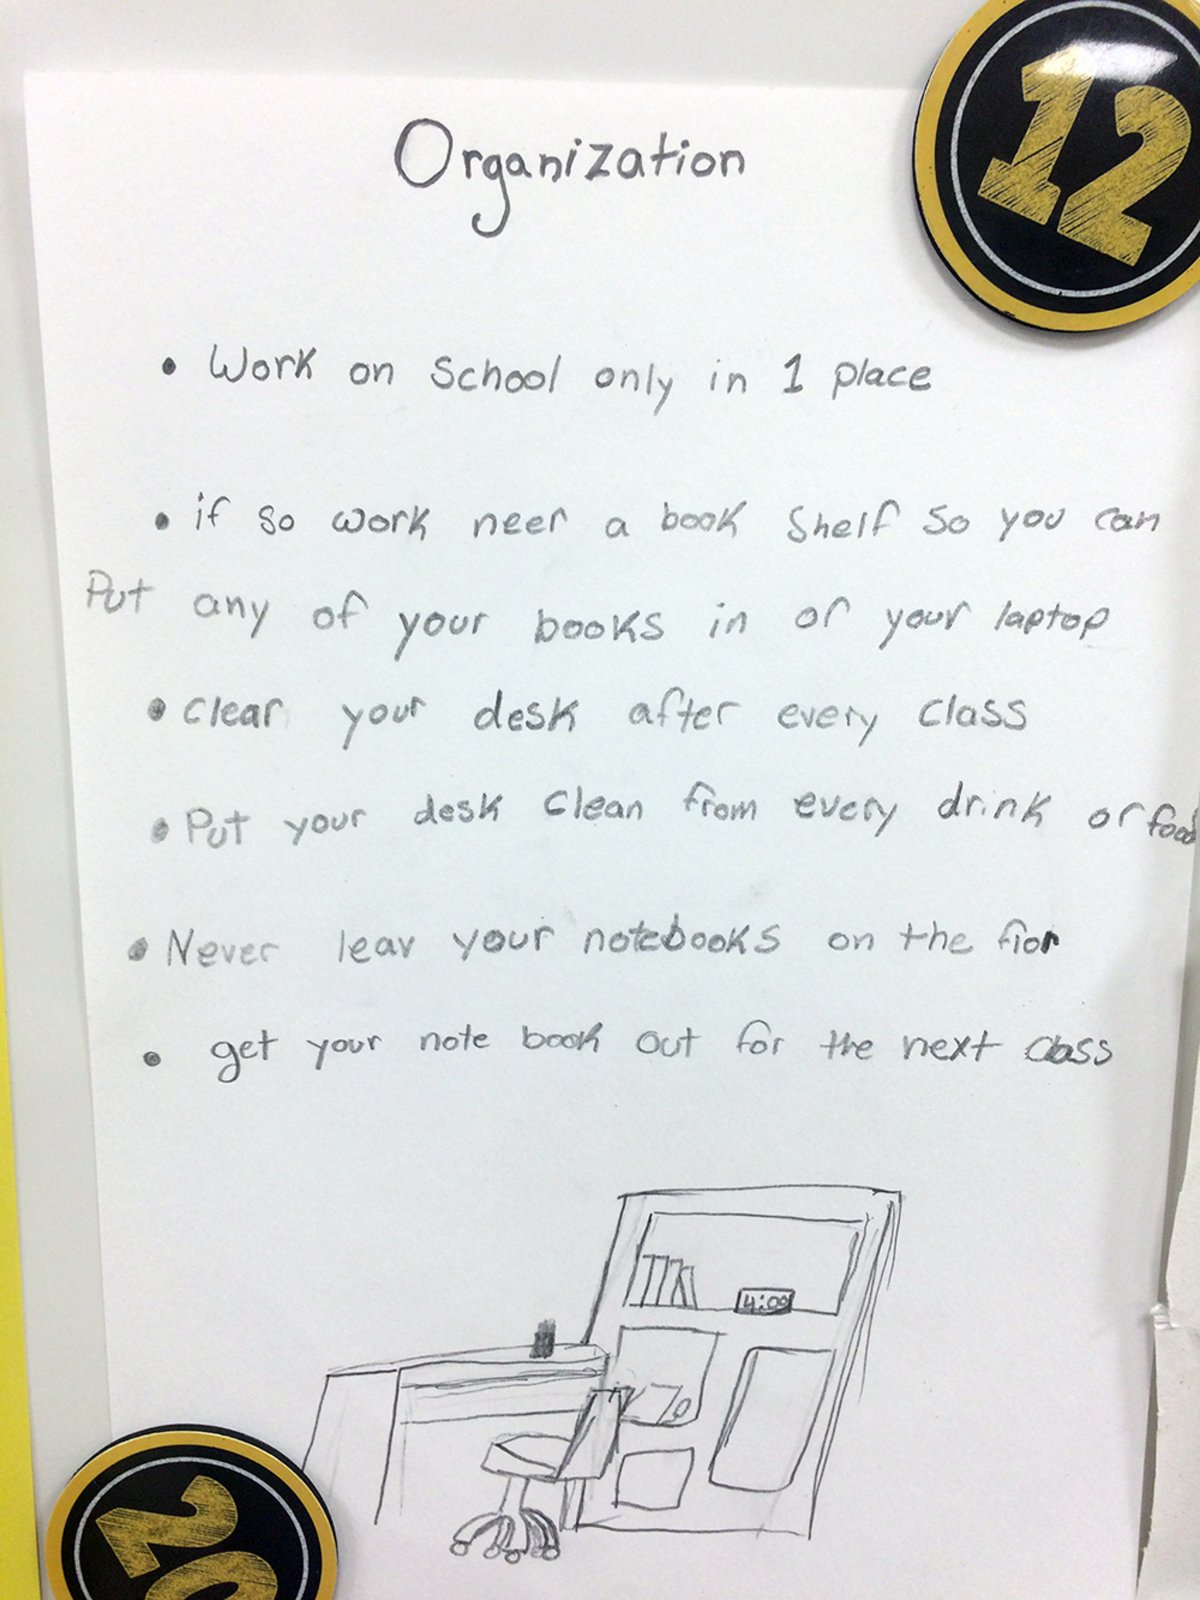 Organization
12
• Work on School only in 1 place
• if so work neer a book shelf so you can
Put any of your books in or your laptop
• Clear your desk after every class
• Put your desk clean from every drink or food
• Never leav your notebooks on the flor
• get your note book out for the next class
4:00
20